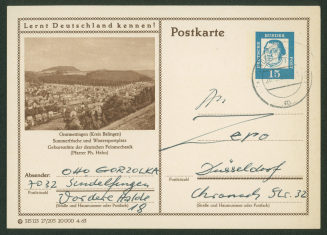 Lernt Deutschland kennen!
Postkarte
DEUTSCHE
BUNDESPOST
15
Onstmettingen (Kreis Balingen)
Sommerfrische und Wintersportplatz
Geburtsstätte der deutschen Feinmechanik
(Pfarrer Ph. Hahn)
An
Zepo
Düsseldorf
Postleitzahl
Chronach Str. 32
(Straße und Hausnummer oder Postfach)
Absender: OTTO GORZOLKA
7032 Sindelfingen
Postleitzahl
Vordere Halde
18
(Straße und Hausnummer oder Postfach)
27/205 20 000 4.63